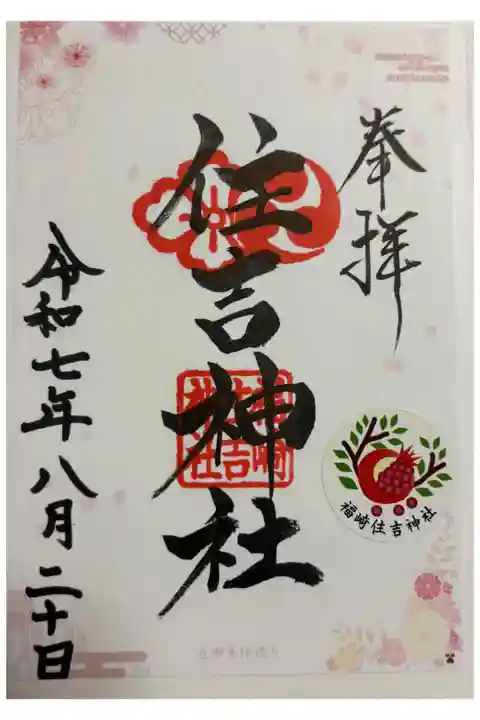 奉拝
住吉神社
令和七年八月二十日
福崎住吉神社